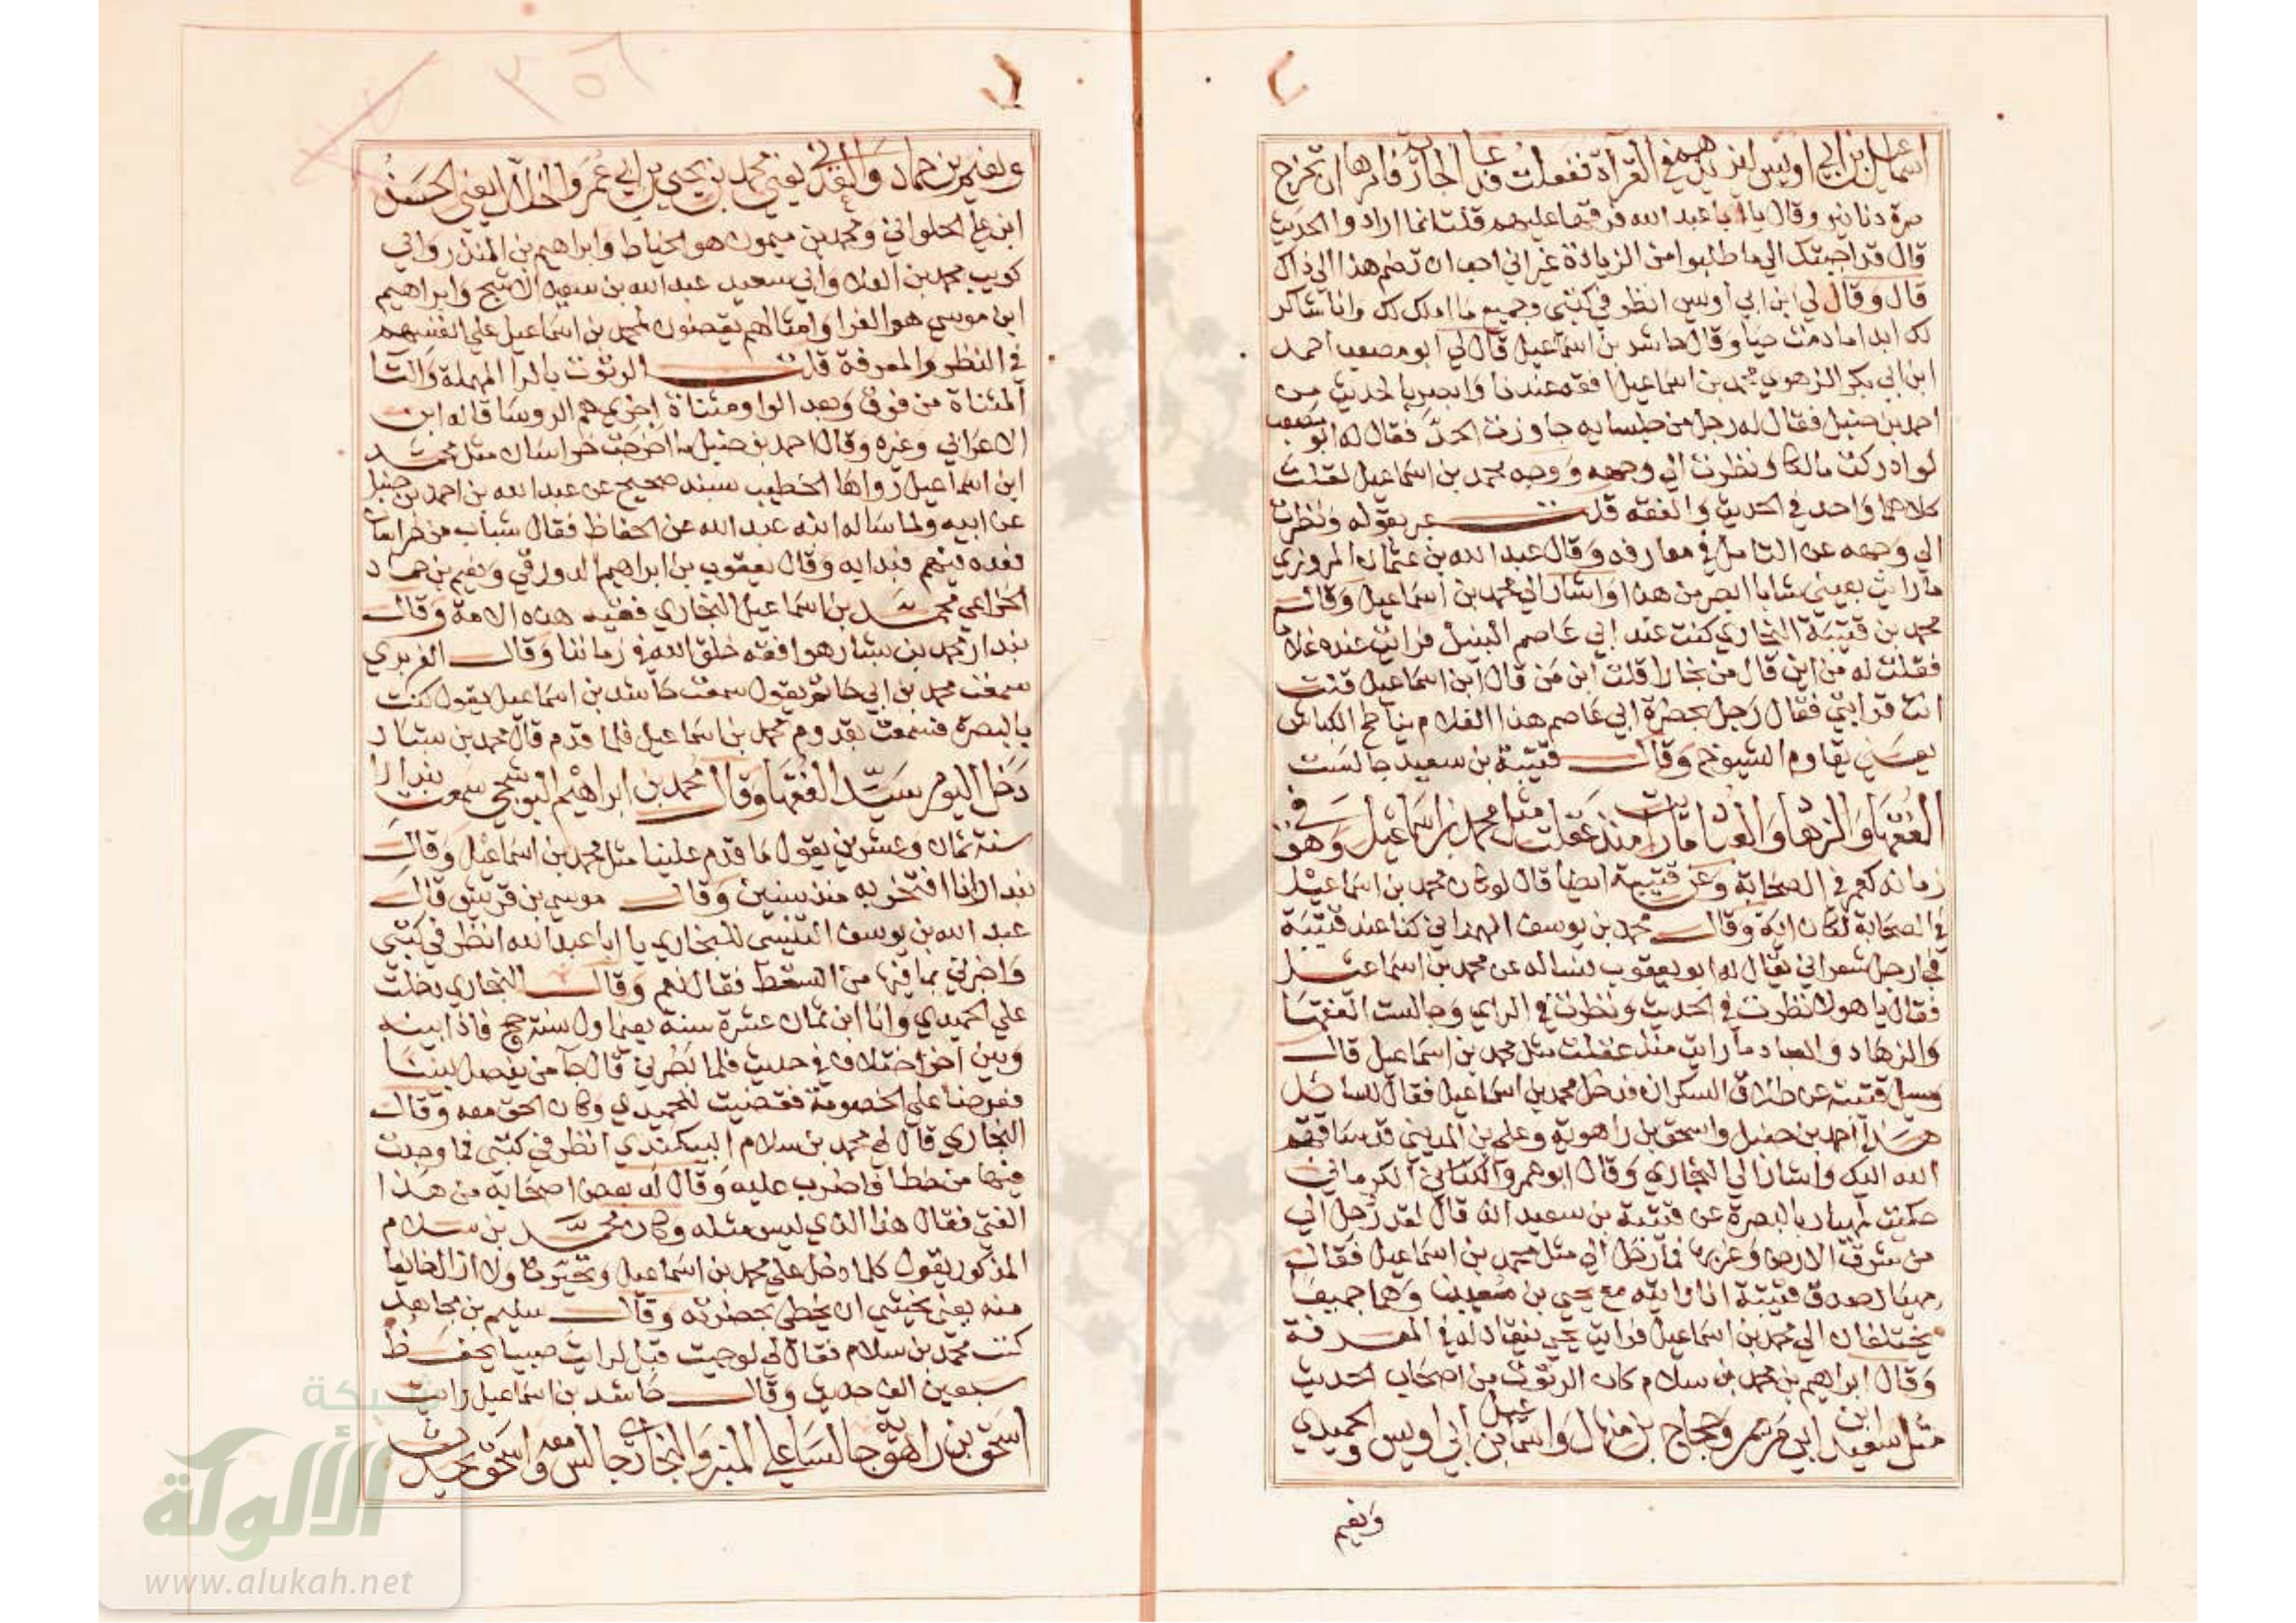 اسماعيل بن ابي اويس ان يزيدهم في القرأة ففعلت فدعا الجارية فامرها ان تخرج
صرة دنانير وقال يا أبا عبد الله فرقها عليهم قلت انما ارادوا الحديث
قال قد اجبتك الي ما طلبوا من الزيادة غير اني احب ان تضم هذا الي ذاك
قال وقال لي ابن ابي أويس انظر في كتبي وجميع ما املك لك وانا شاكر
لك ابدا ما دمت حيا وقال حاشد بن اسماعيل قال لي أبو مصعب احمد
ابن ابي بكر الزهري محمد بن اسماعيل افقه عندنا وابصر بالحديث من
احمد بن حنبل فقال له رجل من جلسايه جاوزت الحد فقال له ابو مصعب
لو ادركت مالكا ونظرت الي وجهه ووجه محمد بن اسماعيل لقلت
كلاهما واحد في الحديث والفقه قلت عبر بقوله ونظرت
الي وجهه عن التامل في معارفه وقال عبد الله بن عثمان المروزي
ما رايت بعيني شابا ابصر من هذا واشار الي محمد بن اسماعيل وقال
محمد بن قتيبة البخاري كنت عند ابي عاصم النبيل فرايت عنده غلاما
فقلت له من اين قال من بخارا قلت ابن من قال ابن اسماعيل قلت
انت قرابتي فقال رجل بحضرة ابي عاصم هذا الغلام يناطح الكباش
يعني يقاوم الشيوخ وقال قتيبة بن سعيد جالست
الفقها والزهاد والعباد ما رايت منذ عقلت مثل محمد بن اسماعيل وهو في
زمانه كعمر في الصحابة وعن قتيبة ايضا قال لو كان محمد بن اسماعيل
في الصحابة لكان اية وقال محمد بن يوسف الهمداني كنا عند قتيبة
فجا رجل شعراني يقال له ابو يعقوب فساله عن محمد بن اسماعيل
فقال يا هولا نظرت في الحديث ونظرت في الراي وجالست الفقها
والزهاد والعباد ما رايت منذ عقلت مثل محمد بن اسماعيل قال
وسيل قتيبة عن طلاق السكران فدخل محمد بن اسماعيل فقال للسايل
هذا احمد بن حنبل واسحق بن راهوية وعلي بن المديني قد ساقهم
الله اليك واشار الي البخاري وقال ابو عمرو الكرماني
حكيت لمهيار بالبصرة عن قتيبة بن سعيد انه قال لقد رحل الي
من شرق الارض وغربها فما رحل الي مثل محمد بن اسماعيل فقال
مهيار صدق قتيبة انا رايته مع يحيي بن معين وهما جميعا
يختلفان الي محمد بن اسماعيل فرايت يحيي ينقاد له في المعرفة
وقال ابراهيم بن محمد بن سلام كان الرتوت من اصحاب الحديث
مثل سعيد ابن ابي مريم وحجاج بن منهال واسماعيل بن أبي اويس والحميدي
ونعيم
ونعيم بن حماد والعدني يعني محمد بن يحيي بن ابي عمر والخلال يعني الحسن
ابن علي الحلواني ومحمد بن ميمون هو الخياط وابراهيم بن المنذر وابي
كريب محمد بن العلا وابي سعيد عبد الله بن سعيد الاشج وابراهيم
ابن موسي هو الفرا وامثالهم يقضون لمحمد بن اسماعيل علي انفسهم
في النظر والمعرفة قلت الرتوت بالرا المهملة والتا
المثناة من فوق وبعد الواو مثناة اخري هم الروسا قاله ابن
الاعرابي وغيره وقال احمد بن حنبل ما اخرجت خراسان مثل محمد
ابن اسماعيل رواها الخطيب بسند صحيح عن عبد الله بن احمد بن حنبل
عن ابيه ولما ساله ابنه عبد الله عن الحفاظ فقال شباب من خراسان
فعده فيهم فبدا به وقال يعقوب بن ابراهيم الدورقي ونعيم بن حماد
الخزاعي محمد بن اسماعيل البخاري فقيه هذه الامة وقال
بندار محمد بن بشار هو افقه خلق الله في زماننا وقال الفربري
سمعت محمد بن ابي حاتم يقول سمعت حاشد بن اسماعيل يقول كنت
بالبصرة فسمعت بقدوم محمد بن اسماعيل فلما قدم قال محمد بن بشار
دخل اليوم سيد الفقها وقال محمد بن ابراهيم البوشنجي سمعت بندارا
سنة ثمان وعشرين يقول ما قدم علينا مثل محمد بن اسماعيل وقال
بندار انا افتخر به منذ سنين وقال موسي بن قريش قال
عبد الله بن يوسف التنيسي للبخاري يا ابا عبد الله انظر في كتبي
واخبرني بما فيها من السقط فقال نعم وقال البخاري دخلت
علي الحميدي وانا ابن ثمان عشرة سنة يعني اول سنة حج فاذا بينه
وبين اخر اختلاف في حديث فلما نظرني قال جآ من يفصل بيننا
فعرضا علي الخصومة فقضيت للحميدي وكان الحق معه وقال
البخاري قال لي محمد بن سلام البيكندي انظر في كتبي فما وجدت
فيها من خطا فاضرب عليه وقال له بعض اصحابه من هذا
الفتي فقال هذا الذي ليس مثله وكان محمد بن سلام
المذكور يقول كلما دخل علي محمد بن اسماعيل وتحيرت ولا ازال خائفا
منه يعني يخشي ان يخطي بحضرته وقال سليم بن مجاهد
كنت محمد بن سلام فقال لي لو جيت قبل لرايت صبيا يحفظ
سبعين الف حديث وقال حاشد بن اسماعيل رايت
اسحق بن راهويه جالسا علي المنبر والبخاري جالس معه واسحق يحدث
شبكة
الألوكة
www.alukah.net